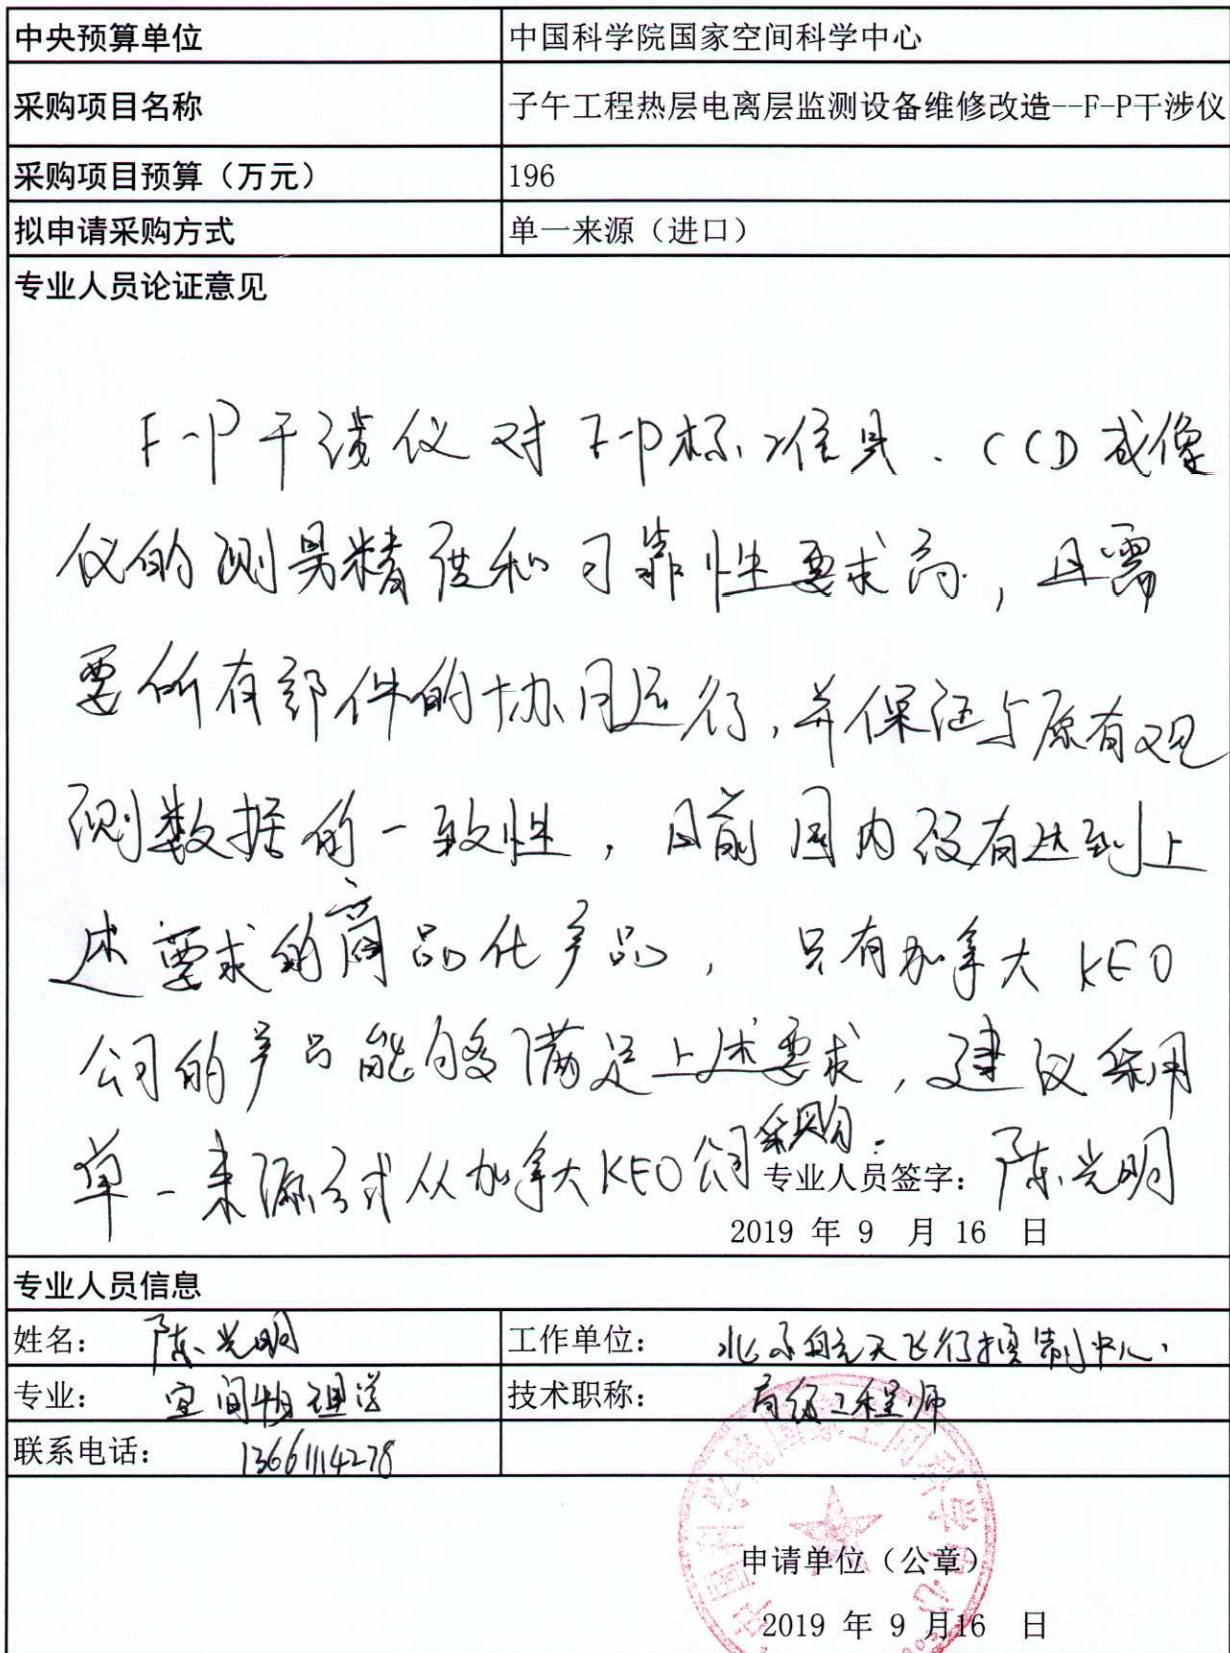 中央预算单位 中国科学院国家空间科学中心
采购项目名称 子午工程热层电离层监测设备维修改造--F-P干涉仪
采购项目预算（万元） 196
拟申请采购方式 单一来源（进口）
专业人员论证意见
F-P干涉仪对F-P标准具、CCD成像
仪的测量精度和可靠性要求高，且需
要所有部件的协同运行，并保证与原有观
测数据的一致性，目前国内没有达到上
述要求的商品化产品，只有加拿大KEO
公司的产品能够满足上述要求，建议采用
单一来源方式从加拿大KEO公司采购。
专业人员签字：陈光明
2019 年 9 月 16 日
专业人员信息
姓名：陈光明 工作单位：北京航天飞行控制中心
专业：空间物理学 技术职称：高级工程师
联系电话：13661114278
中国科学院国家空间科学中心
申请单位（公章）
2019 年 9 月16 日